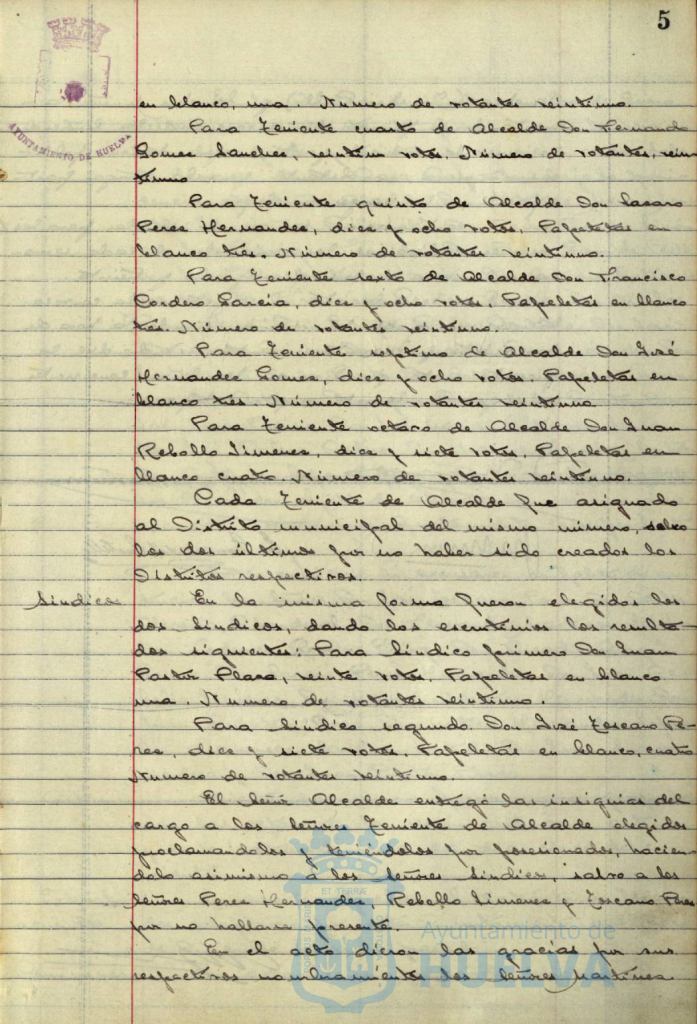 5
AYUNTAMIENTO DE HUELVA
en blanco, una. Numero de votantes veintiuno.
Para Teniente cuarto de Alcalde Don Fernando
Gomez Sanchez, veintiun votos. Número de votantes, vein
tiuno
Para Teniente quinto de Alcalde Don Lazaro
Perez Hernandez, diez y ocho votos, Papeletas en
blanco tres. Número de votantes veintiuno.
Para Teniente sexto de Alcalde Don Francisco
Cordero Garcia, diez y ocho votos, Papeletas en blanco
tres. Número de votantes veintiuno.
Para Teniente septimo de Alcalde Don José
Hernandez Gomez, diez y ocho votos. Papeletas en
blanco tres. Número de votantes veintiuno
Para Teniente octavo de Alcalde Don Juan
Rebollo Jimenez, diez y siete votos. Papeletas en
blanco cuatro. Número de votantes veintiuno.
Cada Teniente de Alcalde fue asignado
al Distrito municipal del mismo número, salvo
los dos últimos por no haber sido creados los
Distritos respectivos.
Sindicos
En la misma forma fueron elegidos los
dos Sindicos, dando los escrutinios los resulta-
dos siguientes: Para Sindico primero Don Juan
Pastor Plaza, veinte votos. Papeletas en blanco
una. Numero de votantes veintiuno.
Para Sindico segundo Don José Toscano Pe-
rez, diez y siete votos. Papeletas en blanco, cuatro
Numero de votantes veintiuno.
El Señor Alcalde entregó las insignias del
cargo a los Señores Teniente de Alcalde elegidos
proclamandolos y teniéndolos por posesionados, hacien-
dolo asimismo a los Señores Sindicos, salvo a los
Señores Perez Hernandez, Rebollo Jimenez y Toscano Perez
por no hallarse presente.
En el acto dieron las gracias por sus
respectivos nombramientos los Señores Martinez
Ayuntamiento de
HUELVA